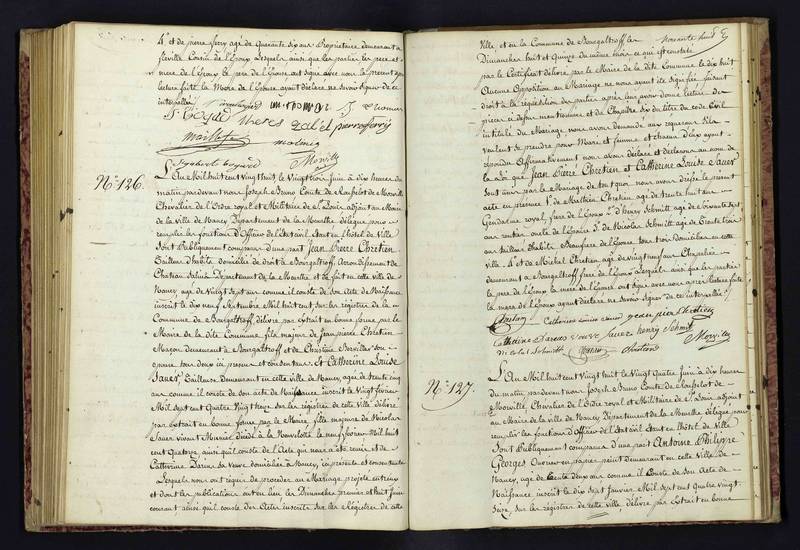 4.° et de pierre ferry agé de Quarante six ans Proprietaire demeurant à
fleville Cousin de l'Epoux Lesquels ainsi que les parties, les pere et
mere de l'Epoux le pere de l'Epouse ont signé avec nous le présent après
lecture faite la Mere de l'Epouse ayant déclaré ne savoir signer de ce
interpellée
pierre ferry
N.° 126.
L'An Mil huit cent Vingt huit, le Vingt trois Juin à dix heures du
matin pardevant nous Joseph Bruno Comte de chasselot de Morville
Chevalier de l'Ordre royal et Militaire de S.t Louis adjoint au Maire
de la Ville de Nancy Département de la Meurthe délégué pour
remplir les fonctions d'Officier de l'Etat civil étant en l'hôtel de Ville
Sont Publiquement comparus d'une part Jean Pierre Chretien
Tailleur d'habits domicilié de droit à Bourgaltroff arrondissement de
Château Salins Département de la Meurthe et de fait en cette ville de
Nancy agé de Vingt sept ans comme il conste de son Acte de Naissance
inscrit le dix neuf Septembre Mil huit cent sur les registres de la
Commune de Bourgaltroff, délivré par Extrait en bonne forme par le
Maire de la dite Commune fils majeur de Jean pierre Chretien
Maçon demeurant à Bourgaltroff et de Christine
pouse tous deux ici présens et consentans. Et Catherine Louise
Sauer, Tailleuse demeurant en cette ville de Nancy, agée de trente cinq
ans comme il conste de son acte de Naissance inscrit le Vingt février
Mil sept cent Quatre Vingt treize sur les registres de cette ville délivré
par Extrait en bonne forme par le Maire, fille majeure de Nicolas
Sauer vivant Meunier décédé à la Neuvelotte le neuf février Mil huit
cent Quatorze ainsi qu'il conste de l'Acte qui nous a été remis et de
Catherine Darens sa veuve domiciliée à Nancy, ici présente et consentante
Lesquels nous ont requis de proceder au Mariage projeté entr'eux
et dont les publications ont eu lieu les Dimanches premier et huit Juin
courant ainsi qu'il conste des Actes inscrits sur les Registres de cette
Ville, et en la Commune de Bourgaltroff les
Dimanches huit et Quinze du même mois ce qui est constaté
par le Certificat délivré par le Maire de la dite Commune le dix huit
Aucune Opposition au Mariage ne nous ayant été Signifiée faisant
droit à la réquisition des parties après leur avoir donné lecture des
pièces ci dessus mentionnées et du Chapitre six du titre du code Civil
intitulé du Mariage nous avons demandé aux requerans s'ils
veulent se prendre pour Mari et femme et chacun d'eux ayant
répondu Affirmativement nous avons déclaré et déclarons au nom de
la Loi que Jean Pierre Chretien et Catherine Louise Sauer
sont unis par le Mariage de tout quoi nous avons dressé le présent
acte en présence 1.° de Mathieu Chretien agé de trente huit ans
Gendarme royal, frere de l'Epoux 2.° d'Henry Schmitt agé de soixante sept
ans rentier oncle de l'Epouse 3.° de Nicolas Schmitt agé de Trente trois
ans tailleur d'habits Beaufrere de l'Epouse tous trois Domiciliés en cette
ville 4.° et de Michel Chretien agé de vingt neuf ans Charpentier
demeurant à Bourgaltroff frere de l'Epoux Lesquels ainsi que les parties
le pere de l'Epoux la mere de l'Epouse ont signé avec nous après lecture faite
la mere de l'Epoux ayant déclaré ne savoir signer de ce interpellée
Catherine Louise Sauer jean pier Chretien
Catherine Darens veuve Sauer henry Schmitt
Nicolas Schmitt Chretien Morville
N.° 127.
L'An Mil huit cent Vingt huit le Vingt Quatre Juin à dix heures
du matin par devant nous Joseph Bruno Comte de Chasselot de
Morville, Chevalier de l'Ordre royal et Militaire de S.t Louis adjoint
au Maire de la ville de Nancy Département de la Meurthe délégué pour
remplir les fonctions d'Officier de l'Etat civil étant en l'hôtel de Ville
Sont Publiquement comparus d'une part Antoine Philippe
Georges Ouvrier en papier peint demeurant en cette Ville de
Nancy, agé de trente deux ans comme il conste de son Acte de
Naissance inscrit le dix sept Janvier Mil sept cent Quatre vingt
seize, sur les registres de cette ville, délivré par Extrait en bonne